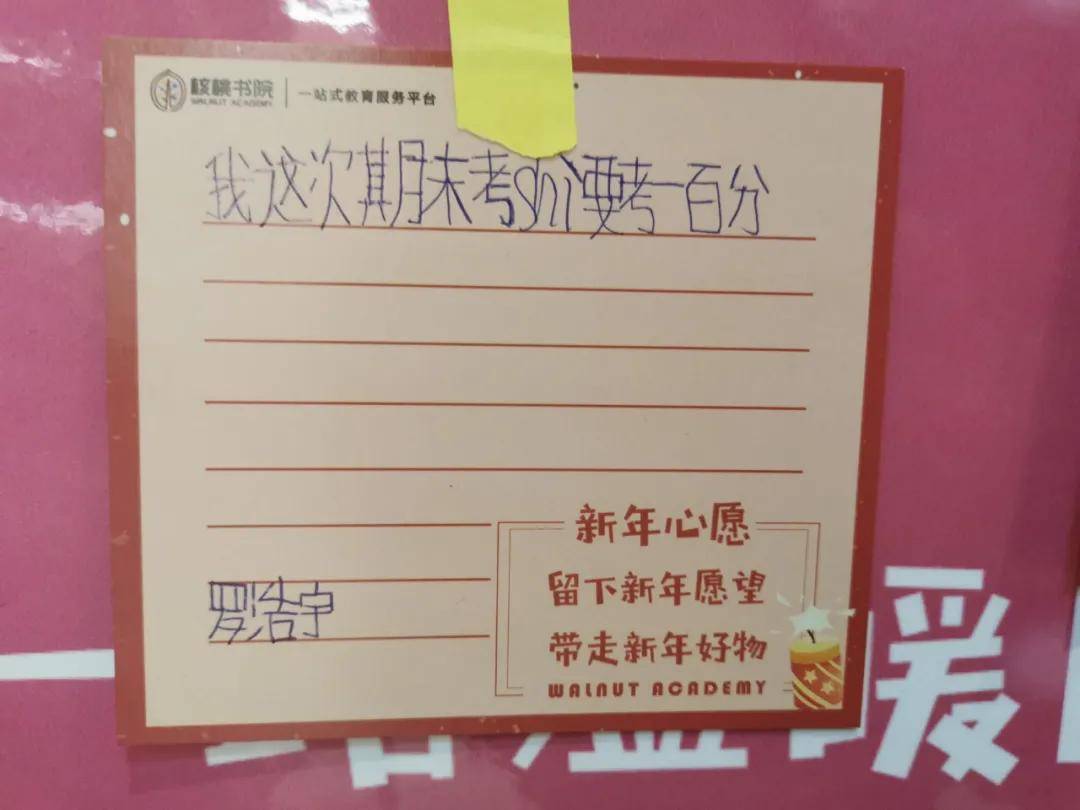 核桃书院
WALNUT ACADEMY
一站式教育服务平台
我这次其期末考shi要考一百分
新年心愿
留下新年愿望
罗浩宇
带走新年好物
WALNUT ACADEMY
暖